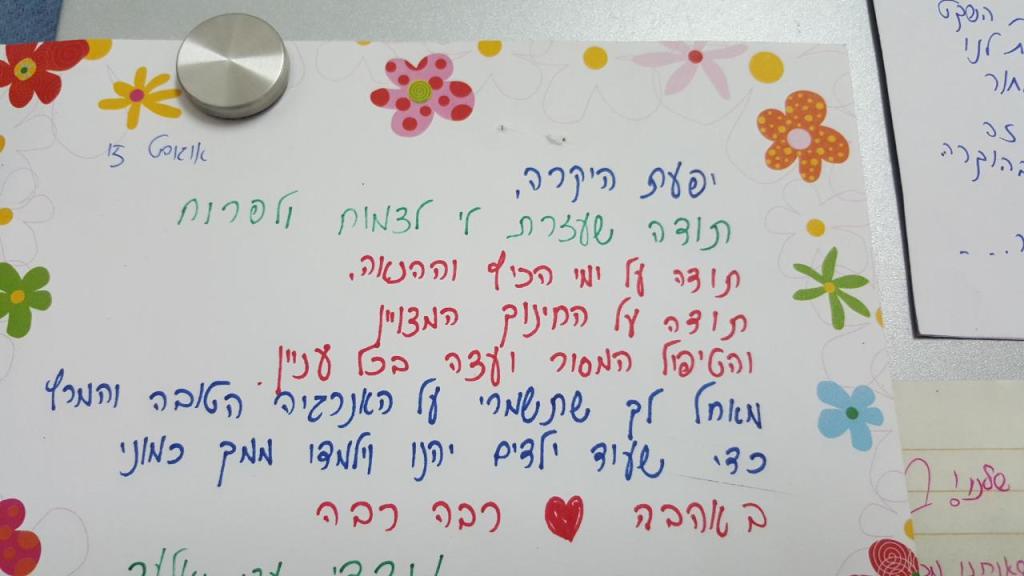 אוגוסט 15
יפעת היקרה,
תודה שעזרת לי לצמוח ולפרוח
תודה על ימי הכיף וההנאה.
תודה על החינוך המצויין
והטיפול המסור ועזה בכל עניין.
מאחל לך שתשמרי על האנרגיה הטובה והמרץ
כדי שעוד ילדים יהנו וילמדו ממך כמוני
באהבה רבה רבה
השקט
לנו
זה
בהוקרה
שלנו!